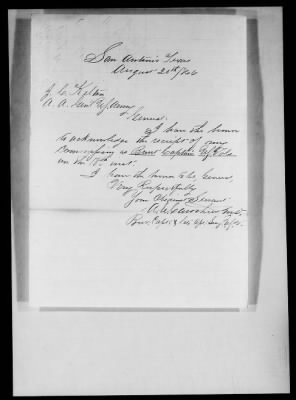 San Antonio Texas
August 20th /66
J. C. Kelton
A. A. Genl U.S. Army
General
I have the honor
to acknowledge the receipt of my
Commission as Brevt Captain U.S. Vols
on the inst.
I have the honor to be, General,
Very Respectfully
Your Obedient Servant
Bvt. Capt. &